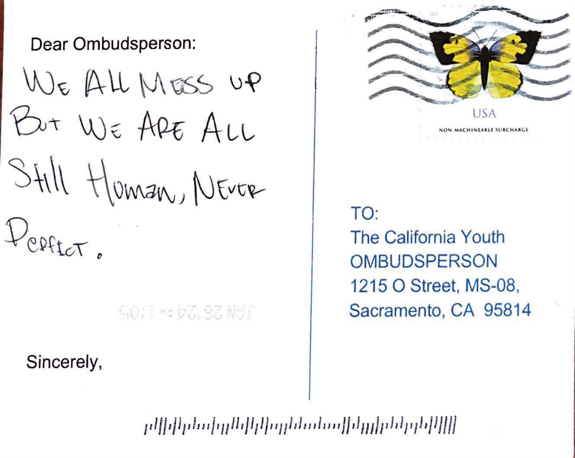 Dear Ombudsperson:
WE ALL MESS UP
BUT WE ARE ALL
Still Human, NEVER
PERFICT.
JAN 26 24 PM 1:05
Sincerely,
USA
NON MACHINEABLE SURCHARGE
TO:
The California Youth
OMBUDSPERSON
1215 O Street, MS-08,
Sacramento, CA 95814